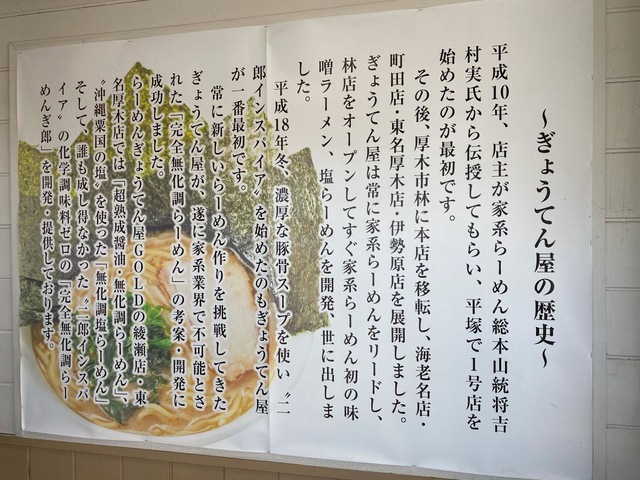 ～ぎょうてん屋の歴史～
平成10年、店主が家系らーめん総本山統将吉
村実氏から伝授してもらい、平塚で１号店を
始めたのが最初です。
その後、厚木市林に本店を移転し、海老名店・
町田店・東名厚木店・伊勢原店を展開しました。
ぎょうてん屋は常に家系らーめんをリードし、
林店をオープンしてすぐ家系らーめん初の味
噌ラーメン、塩らーめんを開発、世に出しま
した。
平成18年冬、濃厚な豚骨スープを使い〝二
郎インスパイア〟を始めたのもぎょうてん屋
が一番最初です。
常に新しいらーめん作りを挑戦してきた
ぎょうてん屋が、遂に家系業界で不可能とさ
れた「完全無化調らーめん」の考案・開発に
成功しました。
らーめんぎょうてん屋GOLDの綾瀬店・東
名厚木店では「超熟成醤油・無化調らーめん」、
〝沖縄粟国の塩〟を使った「無化調塩らーめん」
そして、誰も成し得なかった〝二郎インスパ
イア〟の化学調味料ゼロの「完全無化調らー
めんぎ郎」を開発・提供しております。